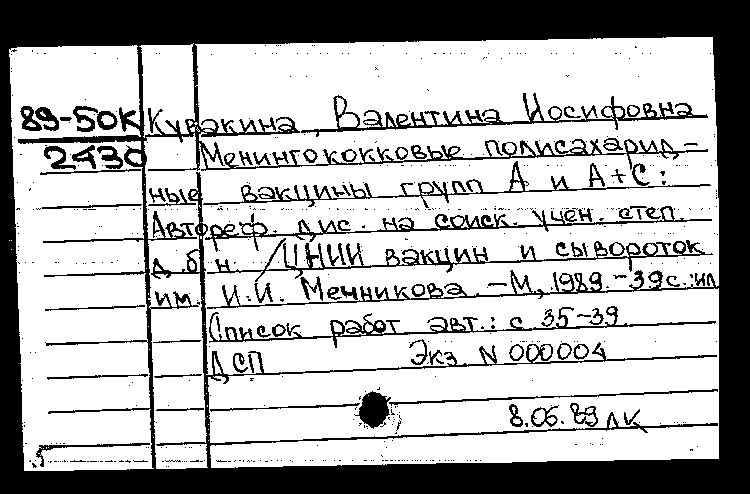 89-50К Кувакина, Валентина Иосифовна
2430 Менингококковые полисахарид-
ные вакцины групп А и А+С:
Автореф. дис. на соиск. учен. степ.
д.б.н. / ЦНИИ вакцин и сывороток
им. И.И. Мечникова. -М, 1989.-39с.:ил
Список работ авт.: с 35-39.
ДСП Экз. N 000004
8.06.89 ЛК